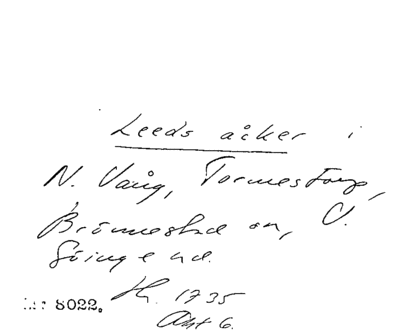 Leeds åker i
N. Vång, Tormestorp,
Brönnestad sn, V.
Göinge hd.
Hr. 1735
Akt 6.
8022.